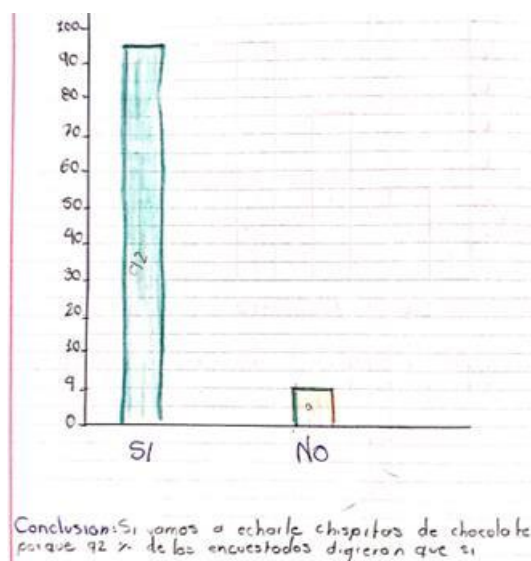 100
90
80
70
60
50
40
30
20
10
9
0
92
9
SI
NO
Conclusion: Si vamos a echarle chispitas de chocolate
porque 92 % de los encuestados digieron que si